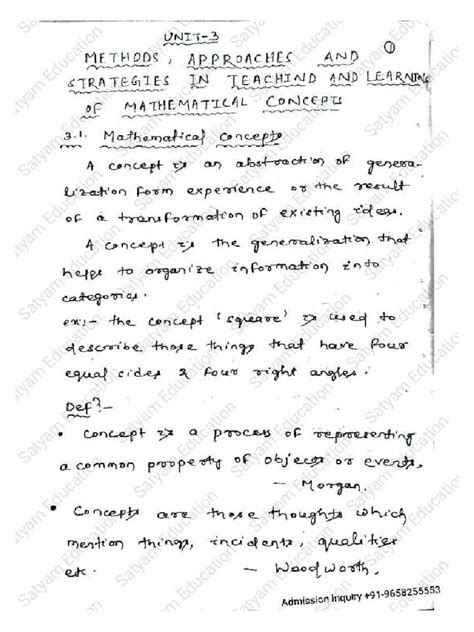 UNIT-3
①
METHODS, APPROACHES AND
STRATEGIES IN TEACHIND AND LEARNING
OF MATHEMATICAL CONCEPTS
3.1. Mathematical concepts
A concept is an abstraction of genera-
lization form experience or the result
of a transformation of existing ideas.
A concept is the generalization that
helps to organize information into
categories.
ex:- the concept 'square' is used to
describe those things that have four
equal sides & four right angles.
Defn:-
• Concept is a process of representing
a common property of objects or events,
— Morgan.
• Concepts are those thoughts which
mention things, incidents, qualities
etc. — Woodworth.
Admission Inquiry +91-9658255553
Satyam Education